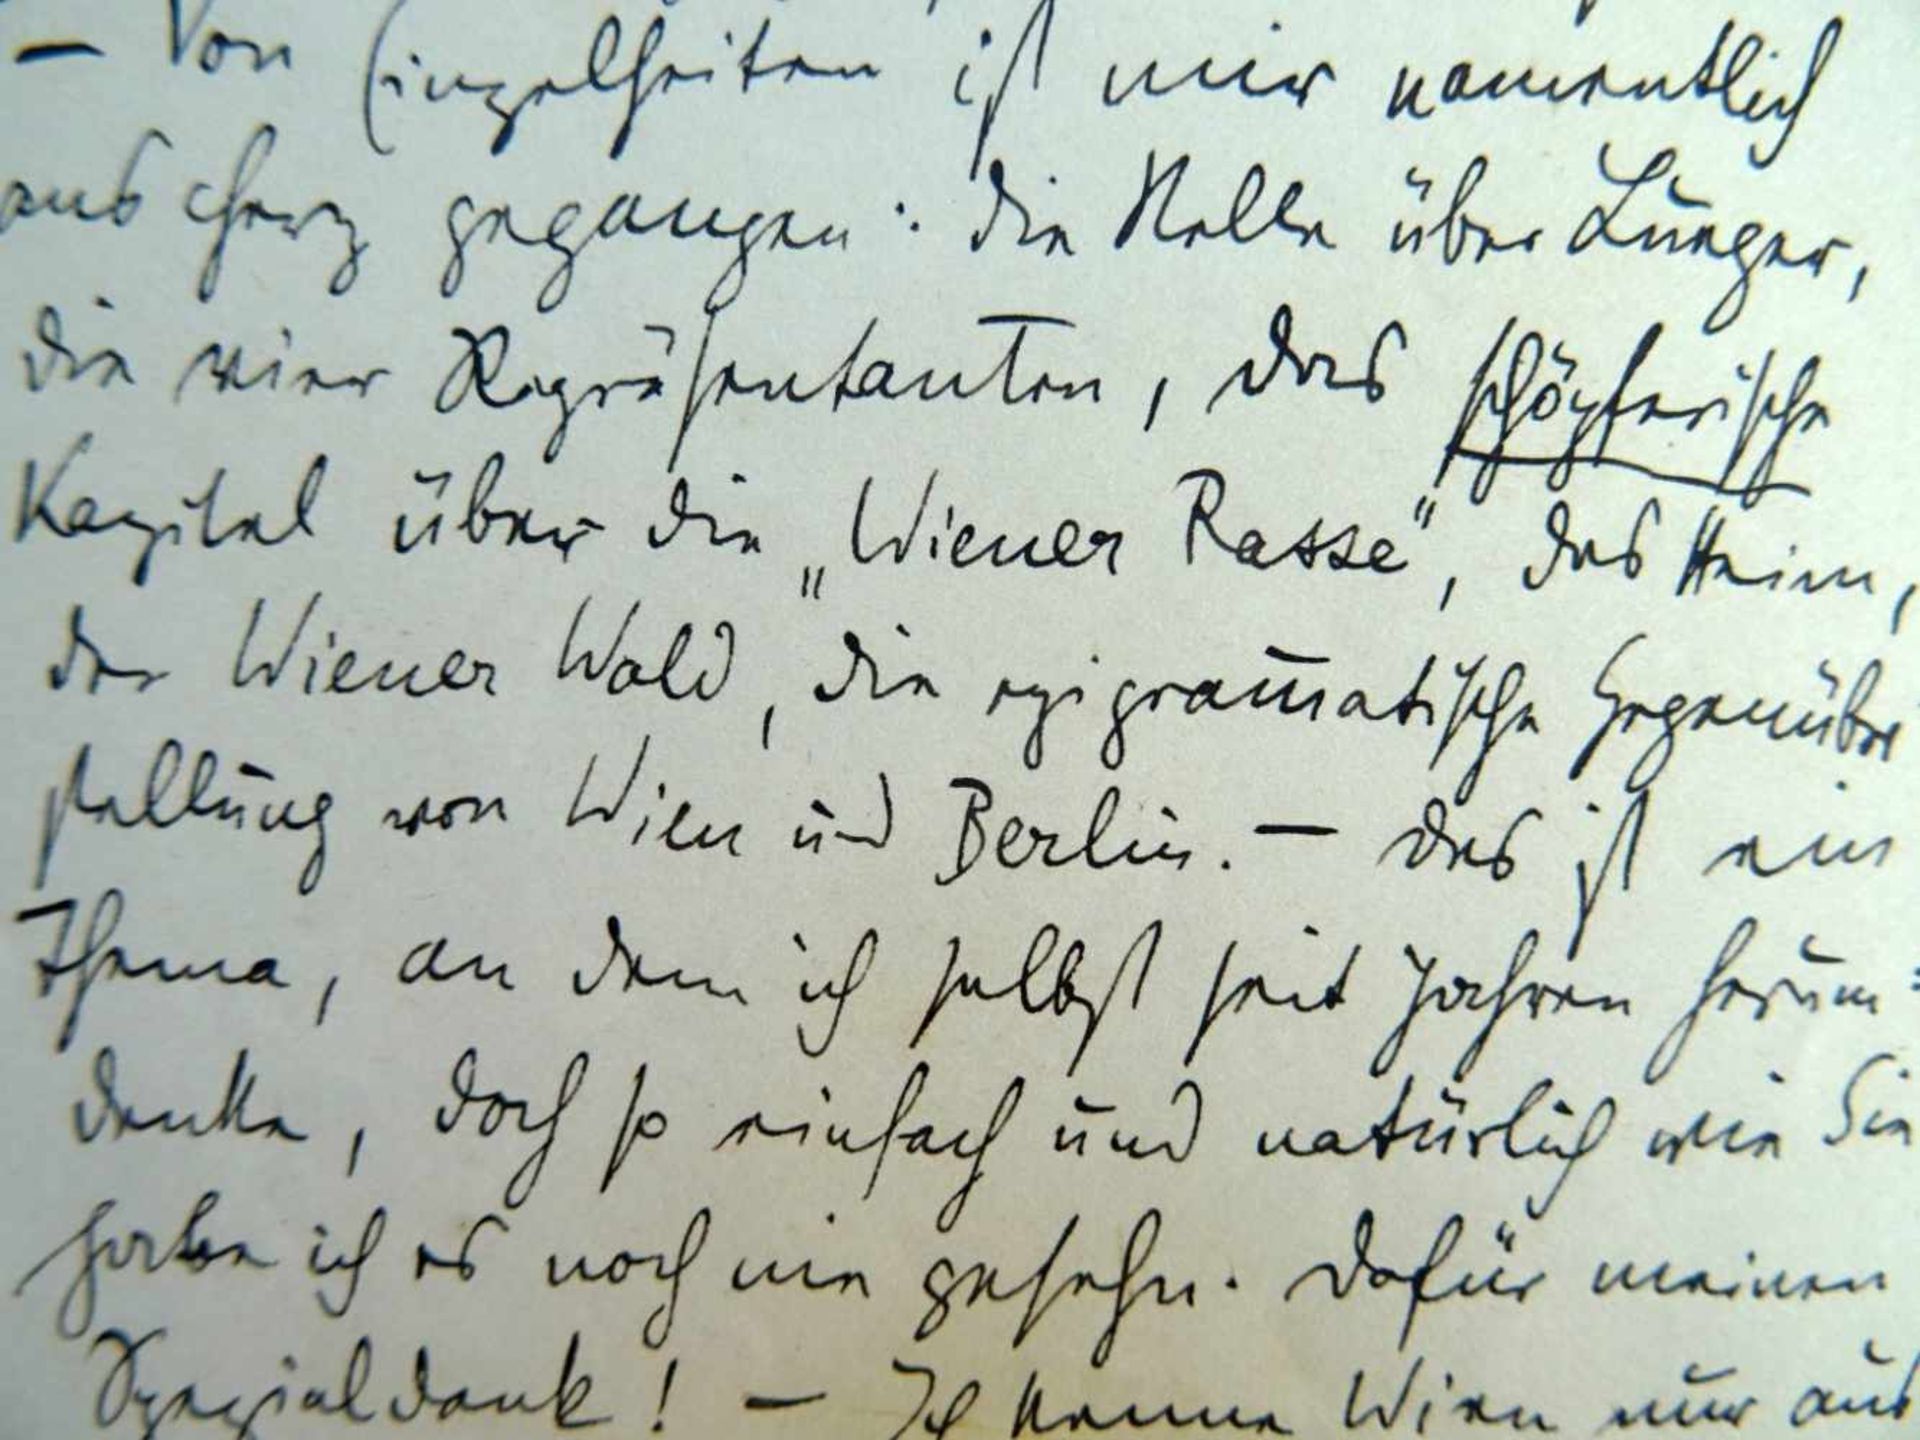 – Von Einzelheiten ist mir namentlich
ans Herz gegangen: die Stelle über Lueger,
die vier Repräsentanten, das schöpferische
Kapitel über die „Wiener Rasse“, das Heim,
der Wiener Wald, die epigram̅atische Gegenüber
stellung von Wien und Berlin. – Das ist ein
Thema, an dem ich selbst seit Jahren herum=
denke, doch so einfach und natürlich wie Sie
habe ich es noch nie gesehn. Dafür meinen
Spezialdank! – Ich kenne Wien nur aus